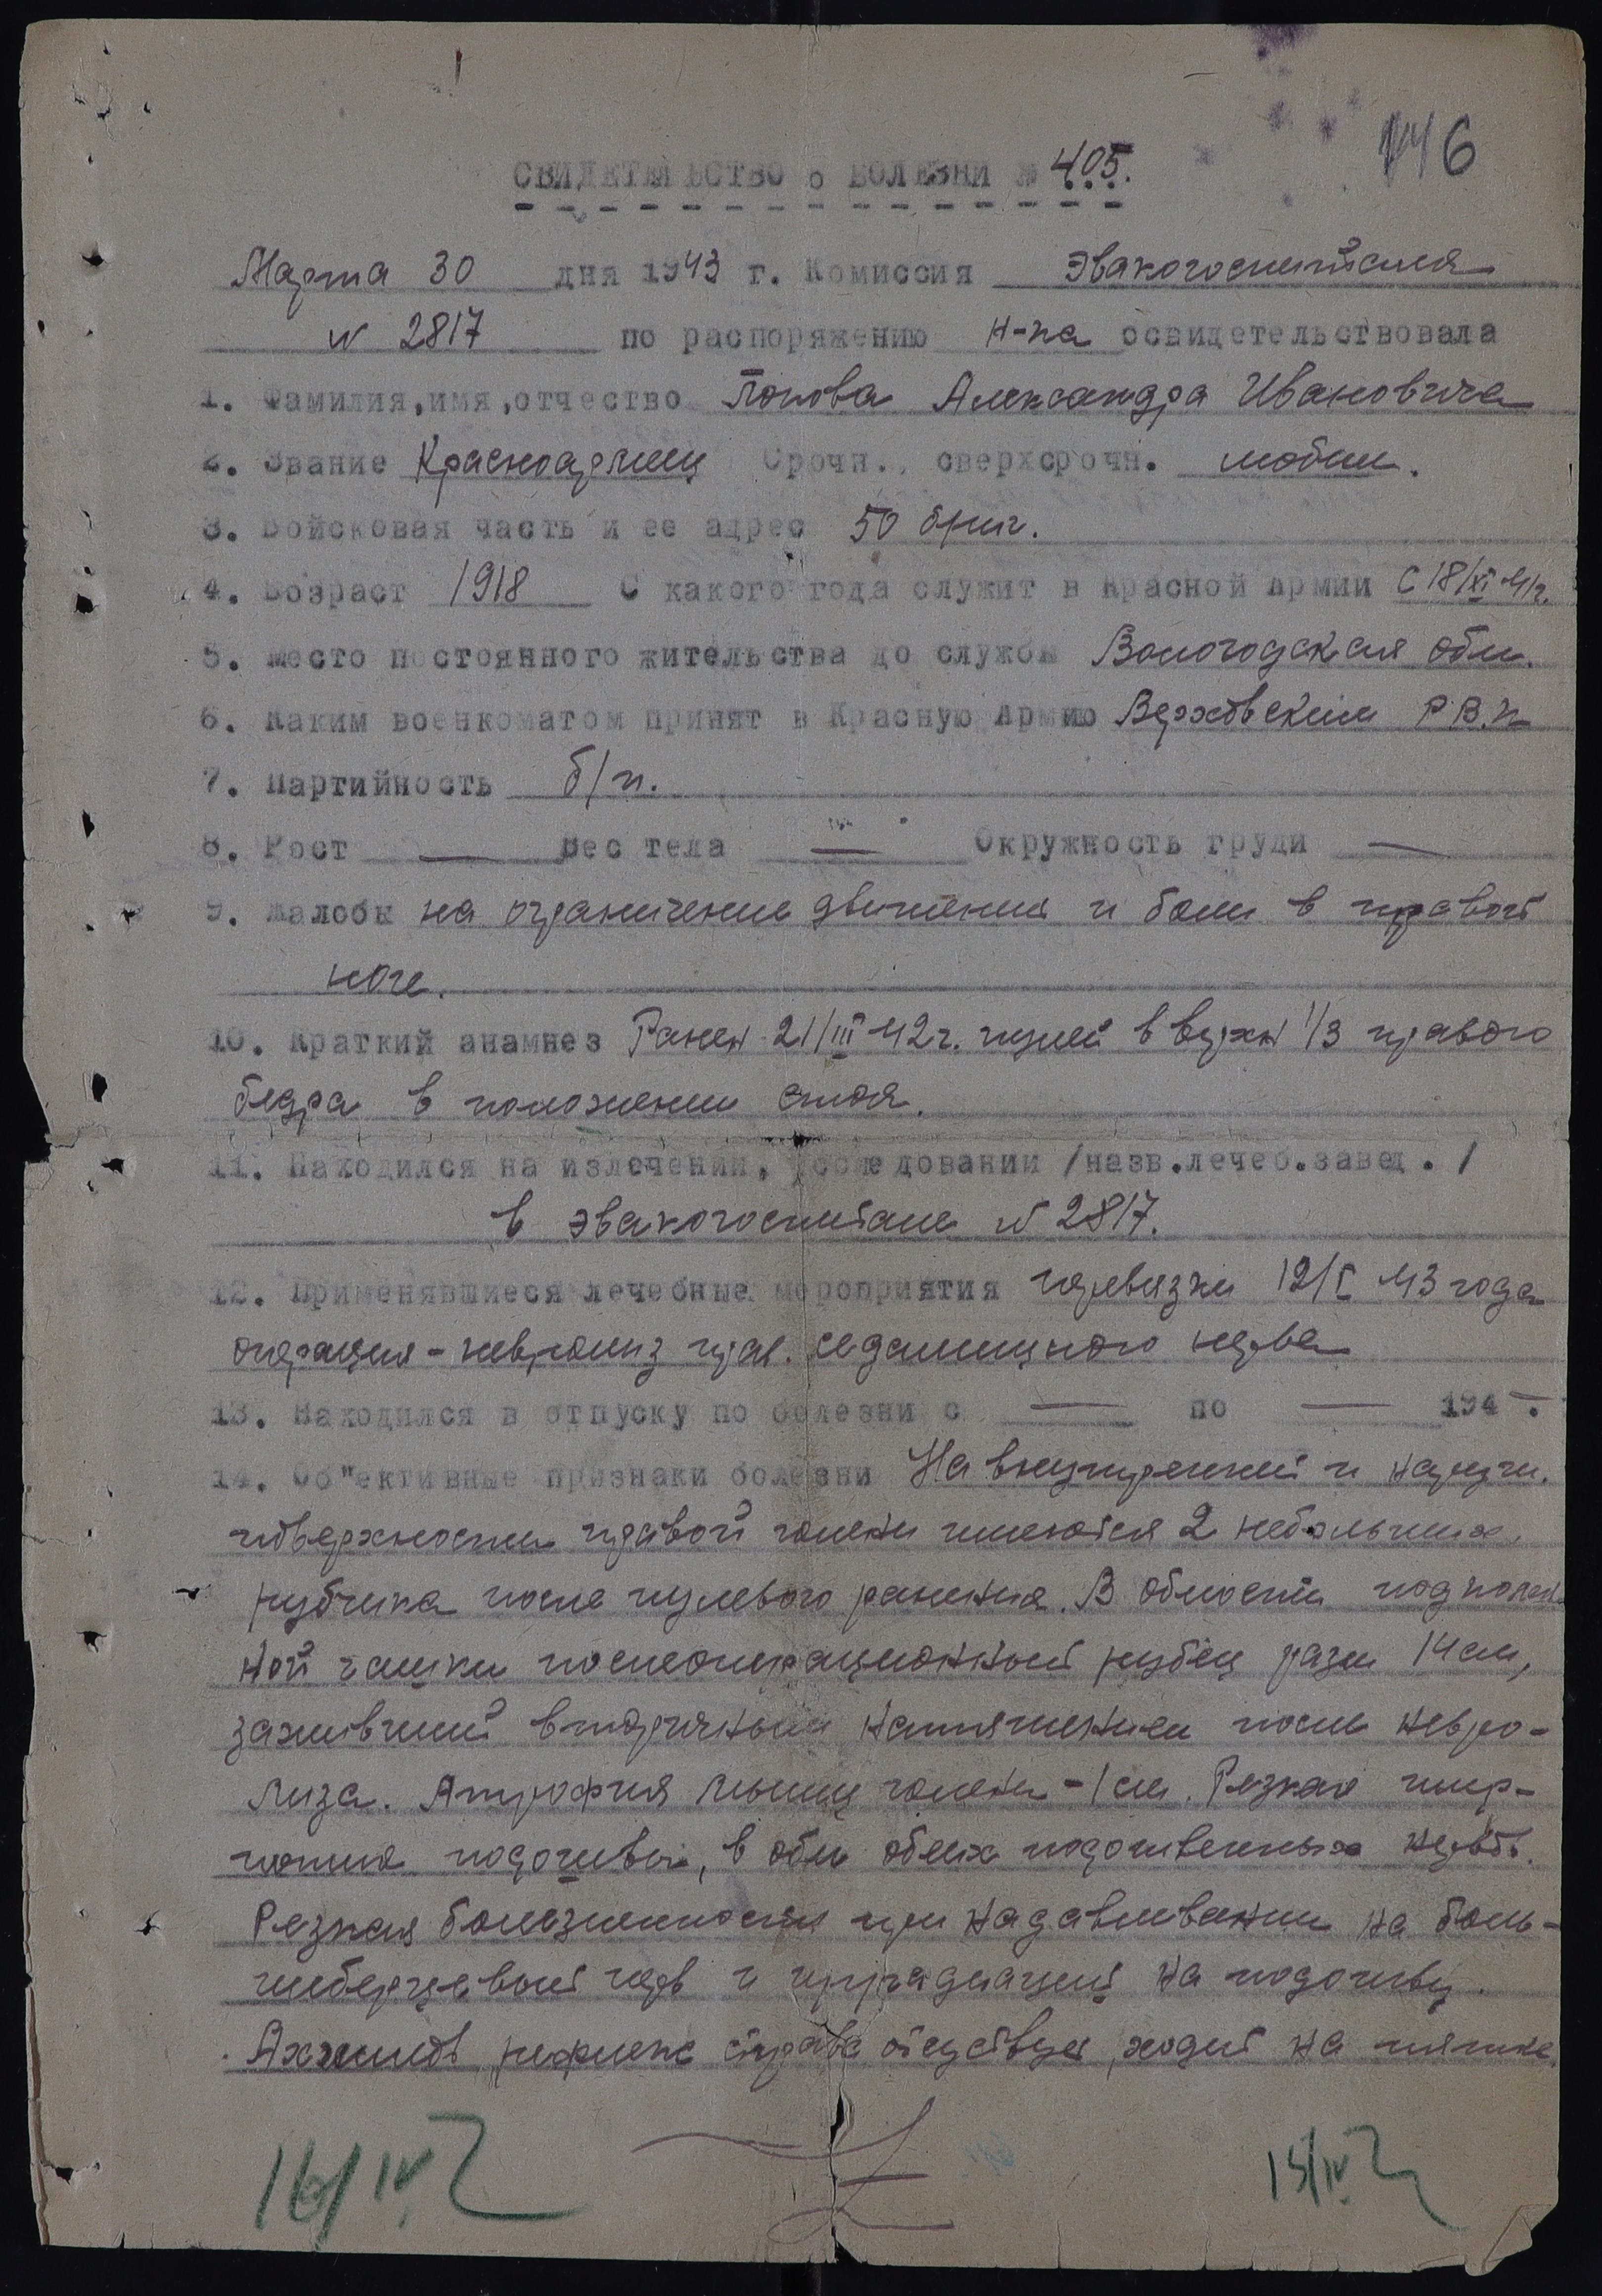 146
СВИДЕТЕЛЬСТВО о БОЛЕЗНИ № 405.
Марта 30 дня 1943 г. Комиссия Эвакогоспиталя
№ 2817 по распоряжению н-ка освидетельствовала
1. Фамилия, имя, отчество Попова Александра Ивановича
2. Звание Красноармеец Срочн., сверхсрочн. мобил.
3. Войсковая часть и ее адрес 50 бриг.
4. Возраст 1918 С какого года служит в Красной Армии с 18/XI 41г.
5. Место постоянного жительства до службы Вологодская обл.
6. Каким военкоматом принят в Красную Армию Верховским Р.В.К
7. Партийность б/п.
8. Рост — Вес тела — Окружность груди —
9. Жалобы на ограничение движения и боли в правой
ноге.
10. Краткий анамнез Ранен 21/III 42г. пулей в верхн 1/3 правого
бедра в положении стоя.
11. Находился на излечении, исследовании /назв.лечеб.завед./
в эвакогоспитале № 2817.
12. Применявшиеся лечебные мероприятия перевязки 12/I 43 года
операция - невролиз прав. седалищного нерва
13. Находился в отпуску по болезни с — по — 194 .
14. Об"ективные признаки болезни На внутренней и наружн.
поверхности правой голени имеются 2 небольших
рубчика после пулевого ранения. В области подколен
ной чашки послеоперационный рубец разм 14 см,
заживший вторичным натяжением после невро-
лиза. Атрофия мышц голени - 1 см. Резкая гипер-
подошвы, в обл обеих подошвенных нервов.
Резкая болезненность при надавливании на боль-
шеберцовый нерв и иррадиацией на подошву.
Ахиллов рефлекс справа отсутствует, ходит на пятке.
16/IV
15/IV